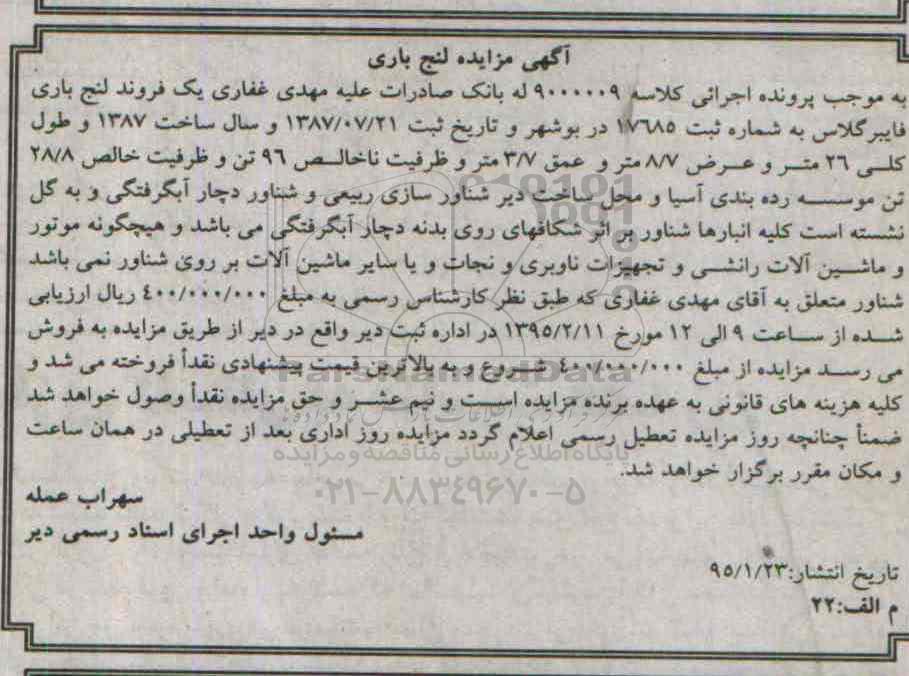 آگهی مزایده لنج باری
به موجب پرونده اجرائی کلاسه ۹۰۰۰۰۰۹ له بانک صادرات علیه مهدی غفاری یک فروند لنج باری
فایبرگلاس به شماره ثبت ۱۷۶۸۵ در بوشهر و تاریخ ثبت ۱۳۸۷/۰۷/۲۱ و سال ساخت ۱۳۸۷ و طول
کلی ۲۶ متر و عرض ۸/۷ متر و عمق ۳/۷ متر و ظرفیت ناخالص ۹۶ تن و ظرفیت خالص ۲۸/۸
تن موسسه رده بندی آسیا و محل ساخت دیر شناور سازی ربیعی و شناور دچار آبگرفتگی و به گل
نشسته است کلیه انبارها شناور بر اثر شکافهای روی بدنه دچار آبگرفتگی می باشد و هیچگونه موتور
و ماشین آلات رانشی و تجهیزات ناوبری و نجات و یا سایر ماشین آلات بر روی شناور نمی باشد
شناور متعلق به آقای مهدی غفاری که طبق نظر کارشناس رسمی به مبلغ ۴۰۰/۰۰۰/۰۰۰ ریال ارزیابی
شده از ساعت ۹ الی ۱۲ مورخ ۱۳۹۵/۲/۱۱ در اداره ثبت دیر واقع در دیر از طریق مزایده به فروش
می رسد مزایده از مبلغ ۴۰۰/۰۰۰/۰۰۰ شروع و به بالاترین قیمت پیشنهادی نقداً فروخته می شد و
کلیه هزینه های قانونی به عهده برنده مزایده است و نیم عشر و حق مزایده نقداً وصول خواهد شد
ضمناً چنانچه روز مزایده تعطیل رسمی اعلام گردد مزایده روز اداری بعد از تعطیلی در همان ساعت
و مکان مقرر برگزار خواهد شد.
سهراب عمله
مسئول واحد اجرای اسناد رسمی دیر
تاریخ انتشار:۹۵/۱/۲۳
م الف:۲۲
ParsNamadData
پایگاه اطلاع رسانی مناقصه و مزایده
۰۲۱-۸۸۳۴۹۶۷۰-۵